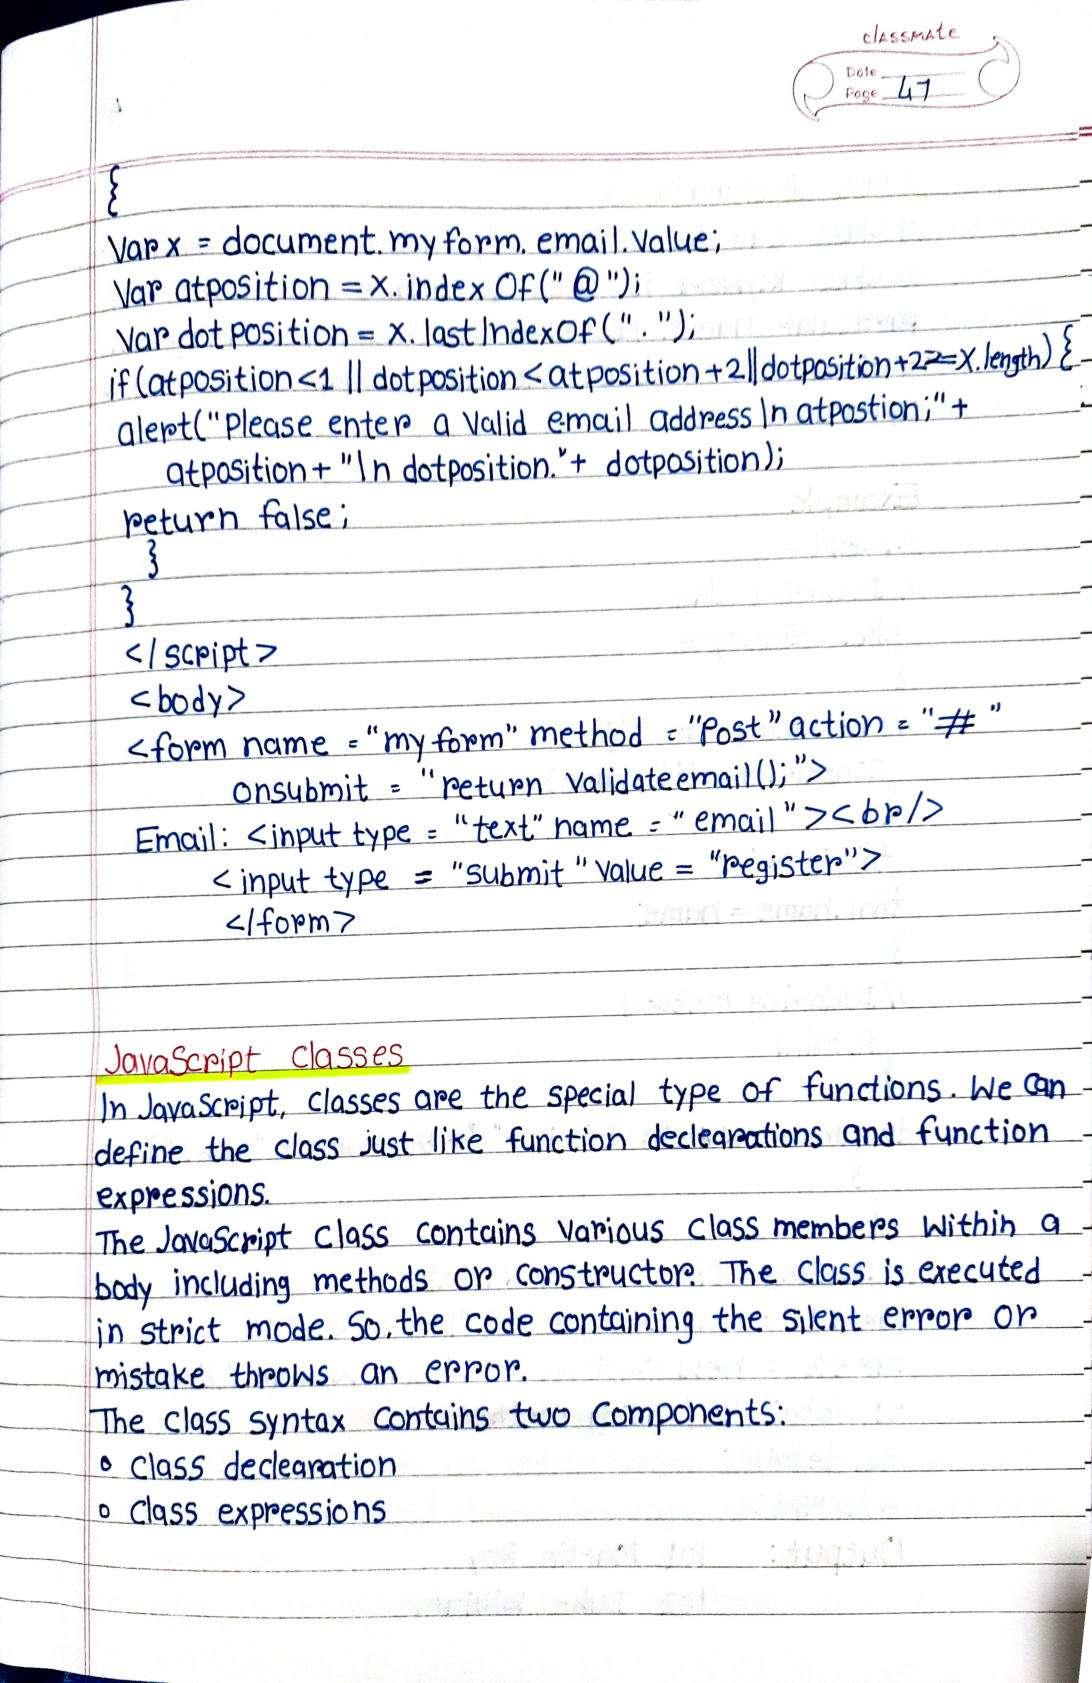 classmate
Date
Page 47
{
Var x = document.myform.email.value;
Var atposition = x.indexOf("@");
Var dotposition = x.lastIndexOf(".");
if(atposition<1 || dotposition<atposition+2||dotposition+2>=x.length){
alert("Please enter a valid e-mail address \n atpostion;"+
atposition+"\n dotposition."+ dotposition);
return false;
}
}
</script>
<body>
<form name = "myform" method = "Post" action = "#"
onsubmit = "return validateemail();">
Email: <input type = "text" name = "email"><br/>
<input type = "submit" value = "register">
</form>
JavaScript classes
In JavaScript, classes are the special type of functions. We can
define the class just like function declearations and function
expressions.
The JavaScript class contains various class members within a
body including methods or constructor. The class is executed
in strict mode. So, the code containing the silent error or
mistake throws an error.
The class syntax contains two components:
o class declearation
o class expressions